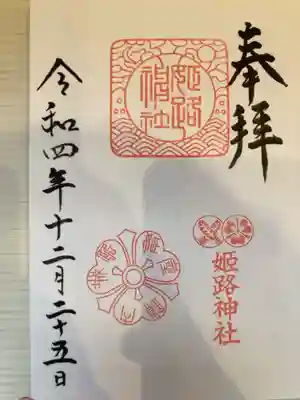 奉拝
姫路
神社
姫路神社
令和四年十二月二十五日